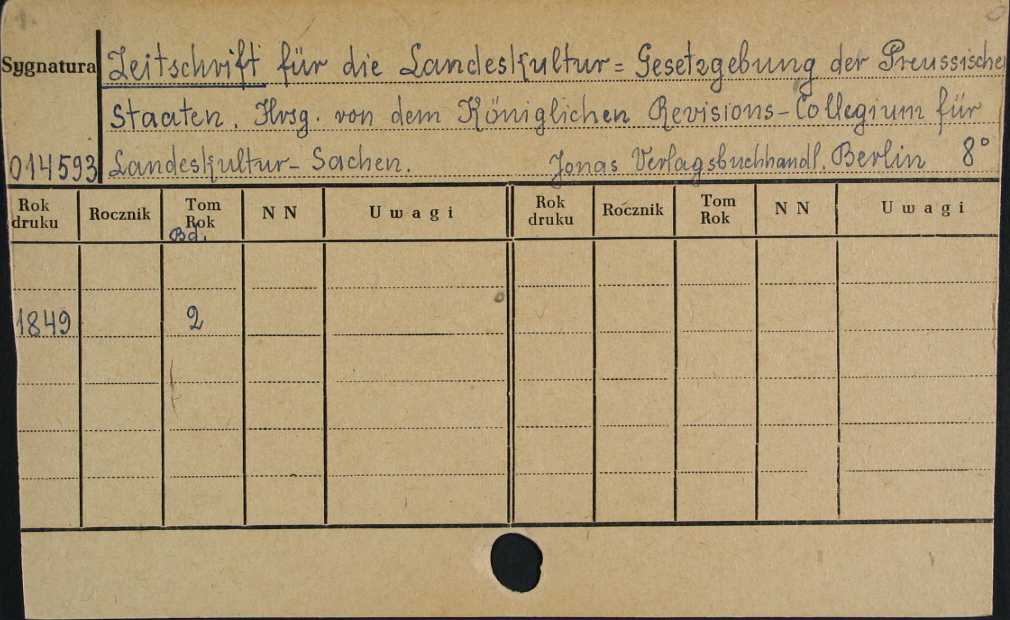 Sygnatura Zeitschrift für die Landeskultur= Gesetzgebung der Preussischen
Staaten. Hrsg. von dem Königlichen Revisions-Collegium für
014593 Landeskultur-Sachen. Jonas Verlagsbuchhandl. Berlin 8°
Rok druku Rocznik Tom Rok NN Uwagi Rok druku Rocznik Tom Rok NN Uwagi
Bd.
1849 2